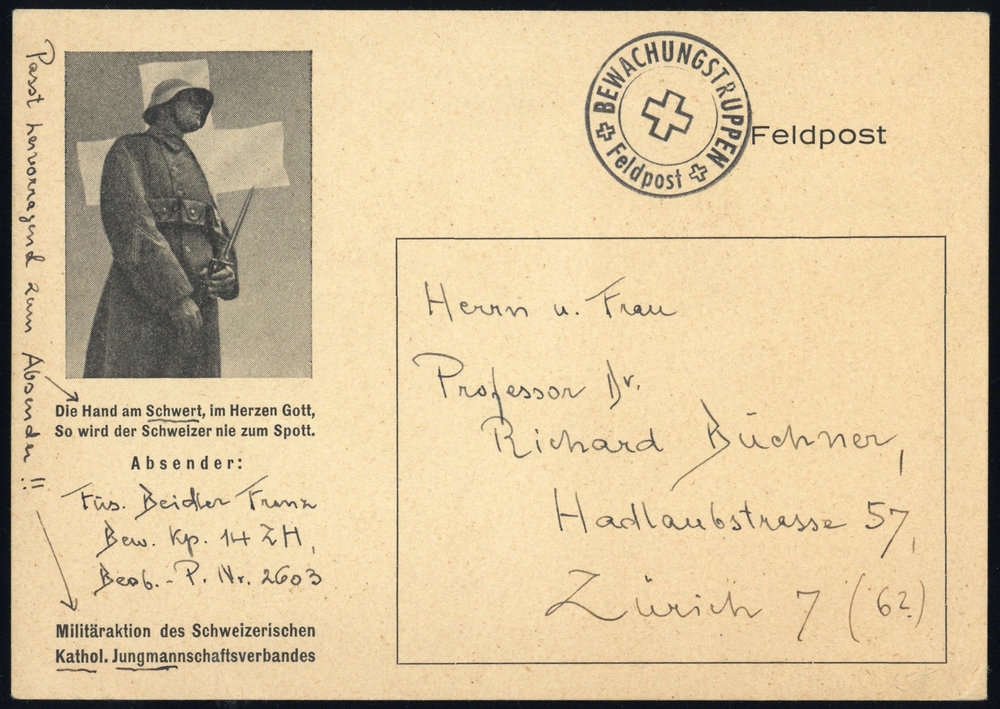 Passt hervorragend zum Absender !!
Die Hand am Schwert, im Herzen Gott,
So wird der Schweizer nie zum Spott.
Absender:
Füs. Beidler Franz
Bew. Kp. 14 ZH,
Beob.-P. Nr. 2603
Militäraktion des Schweizerischen
Kathol. Jungmannschaftsverbandes
BEWACHUNGSTRUPPEN
Feldpost
Feldpost
Herrn u. Frau
Professor Dr.
Richard Büchner,
Hadlaubstrasse 57,
Zürich 7 (62)